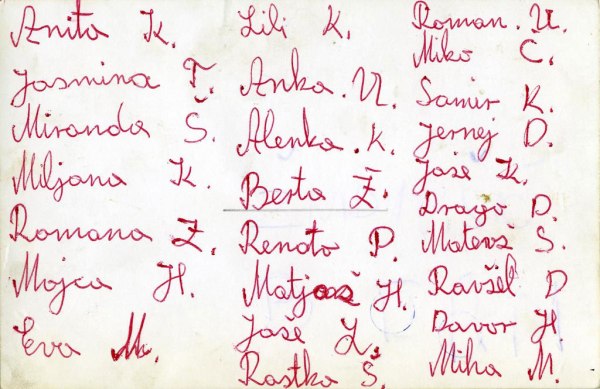 Anita K.
Jasmina T.
Miranda Š.
Miljana K.
Romana Ž.
Mojca H.
Eva M.
Lili K.
Anka. U.
Alenka. K.
Berta Ž.
Renato P.
Matjaš H.
Jože Z.
Rastko Š.
Roman. U.
Miko C.
Samir K.
Jernej D.
Jože K.
Drago D.
Matevš S.
Ravšel D
Davor H.
Miha M.